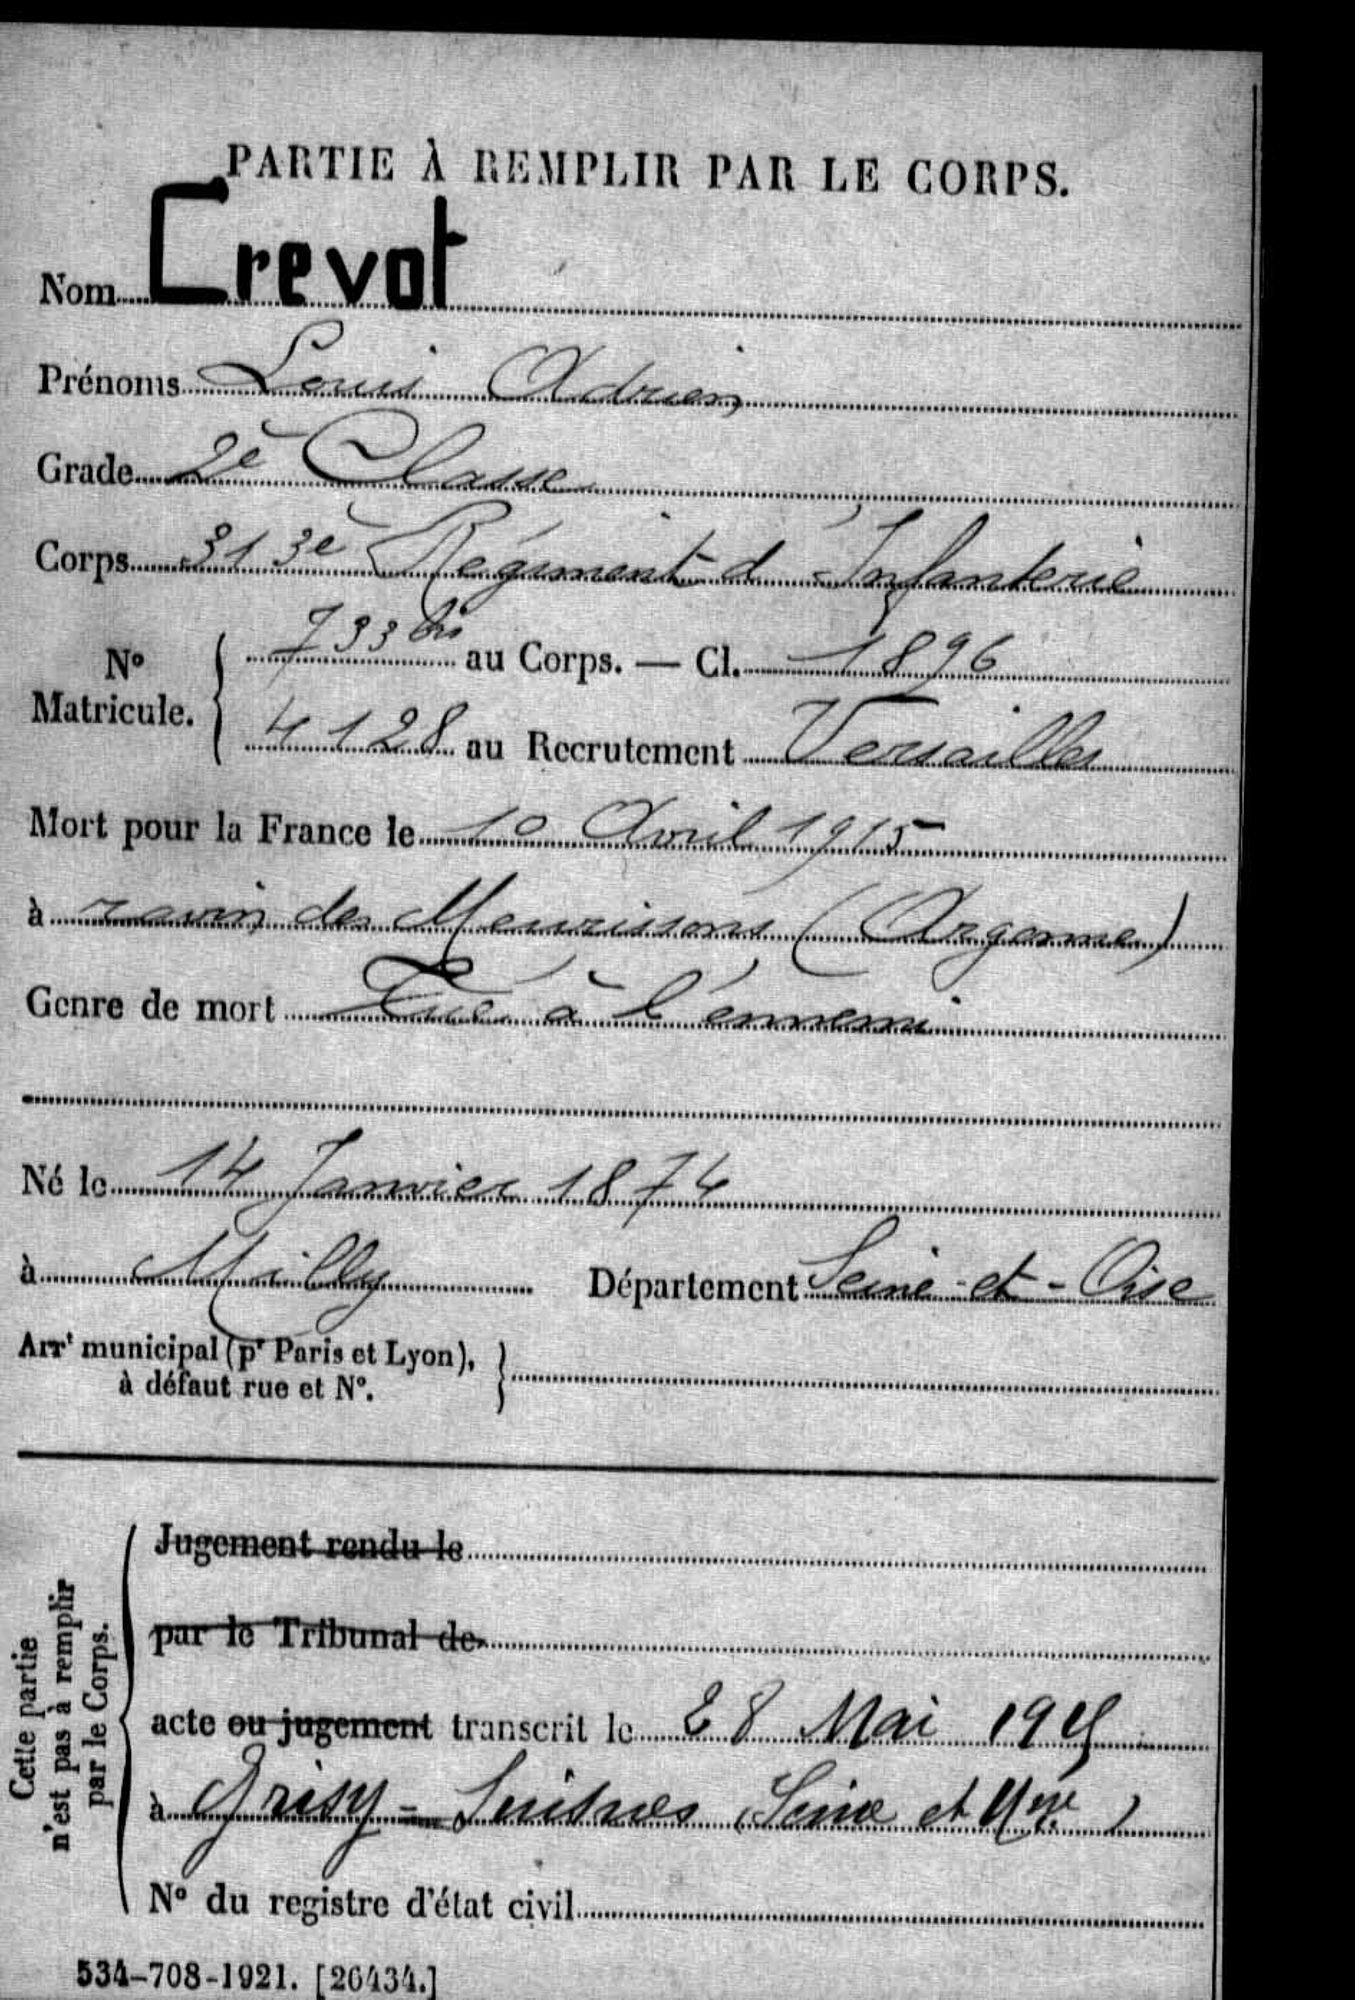 PARTIE À REMPLIR PAR LE CORPS.
Nom Crevot
Prénoms Louis Adrien
Grade 2e Classe
Corps 313e Régiment d'Infanterie
No Matricule. { 733 bis au Corps. — Cl. 1896
4128 au Recrutement Versailles
Mort pour la France le 10 Avril 1915
à ravin des Meurissons (Argonne)
Genre de mort Tué à l'ennemi
Né le 14 Janvier 1874
à Milly Département Seine-et-Oise
Arrt municipal (pr Paris et Lyon), à défaut rue et No. }
Cette partie n'est pas à remplir par le Corps. {
Jugement rendu le
par le Tribunal de
acte ou jugement transcrit le 28 Mai 1915
à Grisy-Suisnes (Seine et Mne)
No du registre d'état civil
534-708-1921. [26434.]